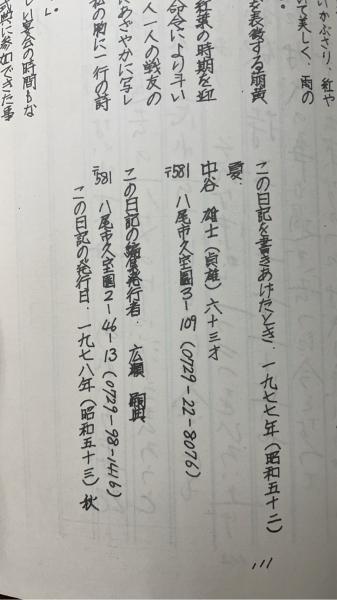 いかぶさり、紅や
て美しく、雨の
を表徴する萌黄
。
紅葉の時期を迎
命令により斗い
人一人の戦友の
にあざやかに写し
私の胸に一行の詩
し。
しい宴会の時間もな
戦に参加できた事
この日記を書きあげたとき、一九七七年（昭和五十二）
夏、
中谷 雄士（貞雄）六十三才
〒581 八尾市久宝園3-109（0729-22-8076）
この日記の編集発行者、広瀬
〒581 八尾市久宝園2-46-13（0729-98-1446）
この日記の発行日、一九七八年（昭和五十三）秋
111